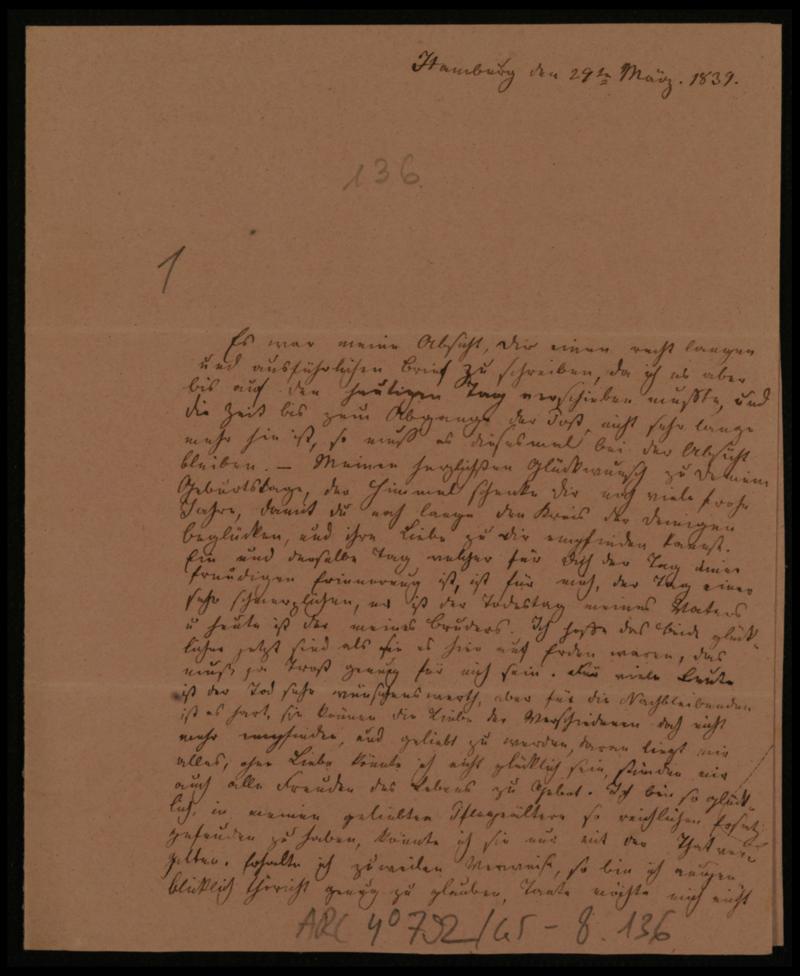 Hamburg den 29ten März. 1839.
136
1
Es war meine Absicht, Dir einen recht langen
und ausführlichen Brief zu schreiben, da ich es aber
bis auf den heutigen Tag verschieben mußte, und
die Zeit bis zum Abgange der Post, nicht sehr lange
mehr hin ist, so muß es diesesmal bei der Absicht
bleiben. – Meinen herzlichsten Glückwunsch zu Deinem
Geburtstage, der Himmel schenke Dir noch viele frohe
Jahre, damit du noch lange den Kreis der Deinigen
beglücken, und ihre Liebe zu Dir empfinden kannst.
Ein und derselbe Tag welcher für Dich der Tag einer
freudigen Erinnerung ist, ist für mich, der Tag einer
sehr schmerzlichen, es ist der Todestag meines Vaters
u heute ist der meines Bruders. Ich hoffe das beide glück-
licher jetzt sind als sie es hier auf Erden waren, das
muß ja Trost genug für mich sein. Für viele Leute
ist der Tod sehr wünschenswerth, aber für die Nachbleibenden
ist es hart, sie können die Liebe der Verschiedenen doch nicht
mehr empfinden, und geliebt zu werden, daran liegt mir
alles, ohne Liebe könnte ich nicht glücklich sein, stünden mir
auch alle Freuden des Lebens zu Gebot. Ich bin so glück-
lich, in meinen geliebten Pflegeältern so reichlichen Ersatz
gefunden zu haben, könnte ich sie nur mit der That ver-
gelten. Erhalte ich zuweilen Verweise, so bin ich augen
blicklich thöricht genug zu glauben, Tante möchte mich nicht
ARC 4° 792/G5 - 8. 136